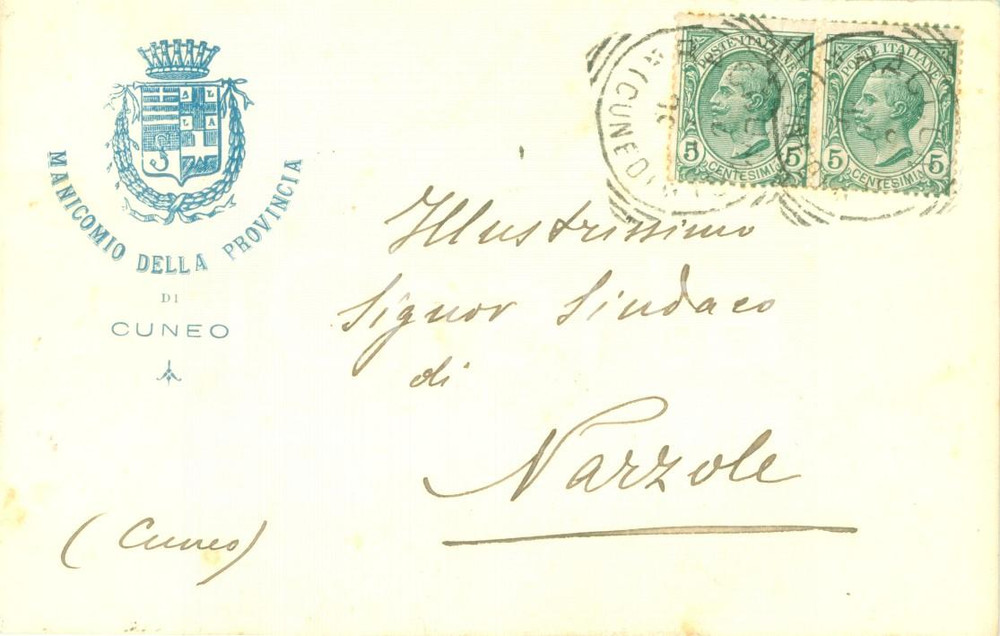 MANICOMIO DELLA PROVINCIA
DI
CUNEO
POSTE ITALIANE
5 CENTESIMI 5
POSTE ITALIANE
5 CENTESIMI 5
(CUNEO)
Illustrissimo
Signor Sindaco
di
Narzole
(Cuneo)